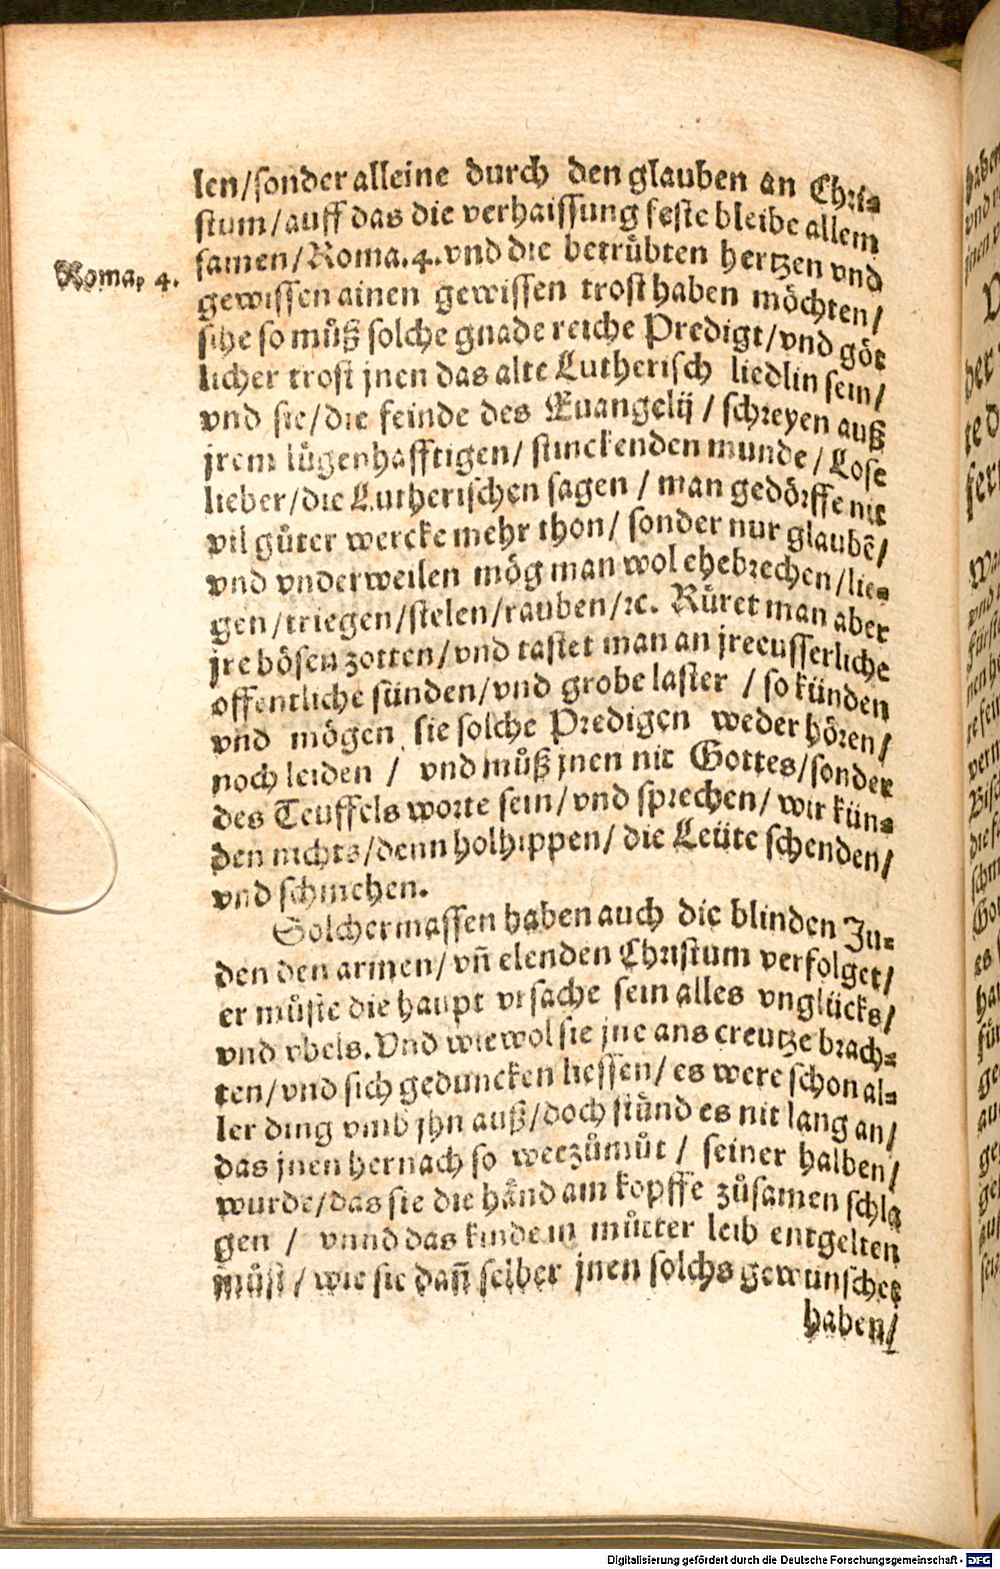 len/sonder alleine durch den glauben an Chri⸗
stum/auff das die verhaissung feste bleibe allem
samen/Roma.4. vnd die betrübten hertzen vnd
Roma, 4.
gewissen ainen gewissen trost haben möchten/
sihe so můß solche gnade reiche Predigt/vnd göt
licher trost jnen das alte Lutherisch liedlin sein/
vnd sie/die feinde des Euangelij/schreyen auß
jrem lügenhafftigen/stinckenden munde/Lose
lieber/die Lutherischen sagen/man gedörffe nit
vil gůter wercke mehr thon/sonder nur glaubē/
vnd vnderweilen mög man wol ehebrechen/lie⸗
gen/triegen/stelen/rauben/ꝛc. Růret man aber
jre bösen zotten/vnd tastet man an jre eusserliche
offentliche sünden/vnd grobe laster/so künden
vnd mögen sie solche Predigen weder hören/
noch leiden/vnd můß jnen nit Gottes/sonder
des Teuffels worte sein/vnd sprechen/wir kün⸗
den nichts/denn holhippen/die Leüte schenden/
vnd schmehen.
Solchermassen haben auch die blinden Ju⸗
den den armen/vn̄ elenden Christum verfolget/
er můste die haupt vrsache sein alles vnglücks/
vnd vbels. Vnd wiewol sie jne ans creutze brach⸗
ten/vnd sich geduncken liessen/es were schon al⸗
ler ding vmb jhn auß/doch stůnd es nit lang an/
das jnen hernach so weezůmůt/seiner halben/
wurde/das sie die händ am kopffe zůsamen schla
gen/vnnd das kinde in můtter leib entgelten
můst/wie sie dan̄ selber jnen solchs gewunschet
haben/
Digitalisierung gefördert durch die Deutsche Forschungsgemeinschaft - DFG